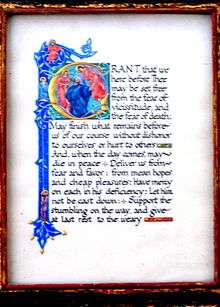 GRANT that we
here before Thee
may be set free
from the fear of
vicissitude, and
the fear of death:
May finish what remains before
us of our course without dishonor
to ourselves or hurt to others
And, when the day comes, may
die in peace + Deliver us from
fear and favor: from mean hopes
and cheap pleasures: Have mercy
on each in his deficiency: Let him
not be cast down: + Support the
stumbling on the way, and give
at last rest to the weary